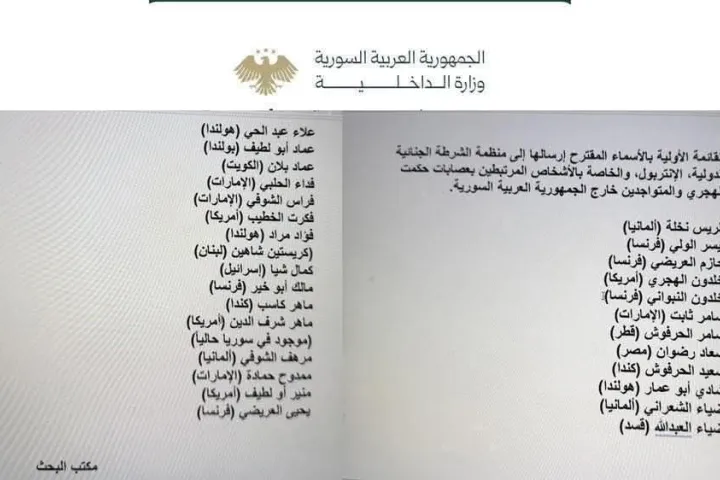 الجمهورية العربية السورية
وزارة الداخلية
لقائمة الأولية بالأسماء المقترح إرسالها إلى منظمة الشرطة الجنائية
لدولية، الإنتربول، والخاصة بالأشخاص المرتبطين بعصابات حكمت
لهجري والمتواجدين خارج الجمهورية العربية السورية.
نخلة (ألمانيا)
الولي (فرنسا)
حازم العريضي (فرنسا)
خلدون الهجري (أمريكا)
خلدون النبواني (فرنسا)
سامر ثابت (الإمارات)
سامر الحرفوش (قطر)
سعاد رضوان (مصر)
سعيد الحرفوش (كندا)
شادي أبو عمار (هولندا)
ضياء الشعراني (ألمانيا)
ضياء العبدالله (قسد)
علاء عبد الحي (هولندا)
عماد أبو لطيف (بولندا)
عماد بلان (الكويت)
فداء الحلبي (الإمارات)
فراس الشوفي (الإمارات)
فكرت الخطيب (أمريكا)
فؤاد مراد (هولندا)
(كريستين شاهين (لبنان)
كمال شيا (إسرائيل)
مالك أبو خير (فرنسا)
ماهر كاسب (كندا)
ماهر شرف الدين (أمريكا)
(موجود في سوريا حالياً)
مرهف الشوفي (ألمانيا)
ممدوح حمادة (الإمارات)
منير أو لطيف (أمريكا)
يحيى العريضي (فرنسا)
مكتب البحث